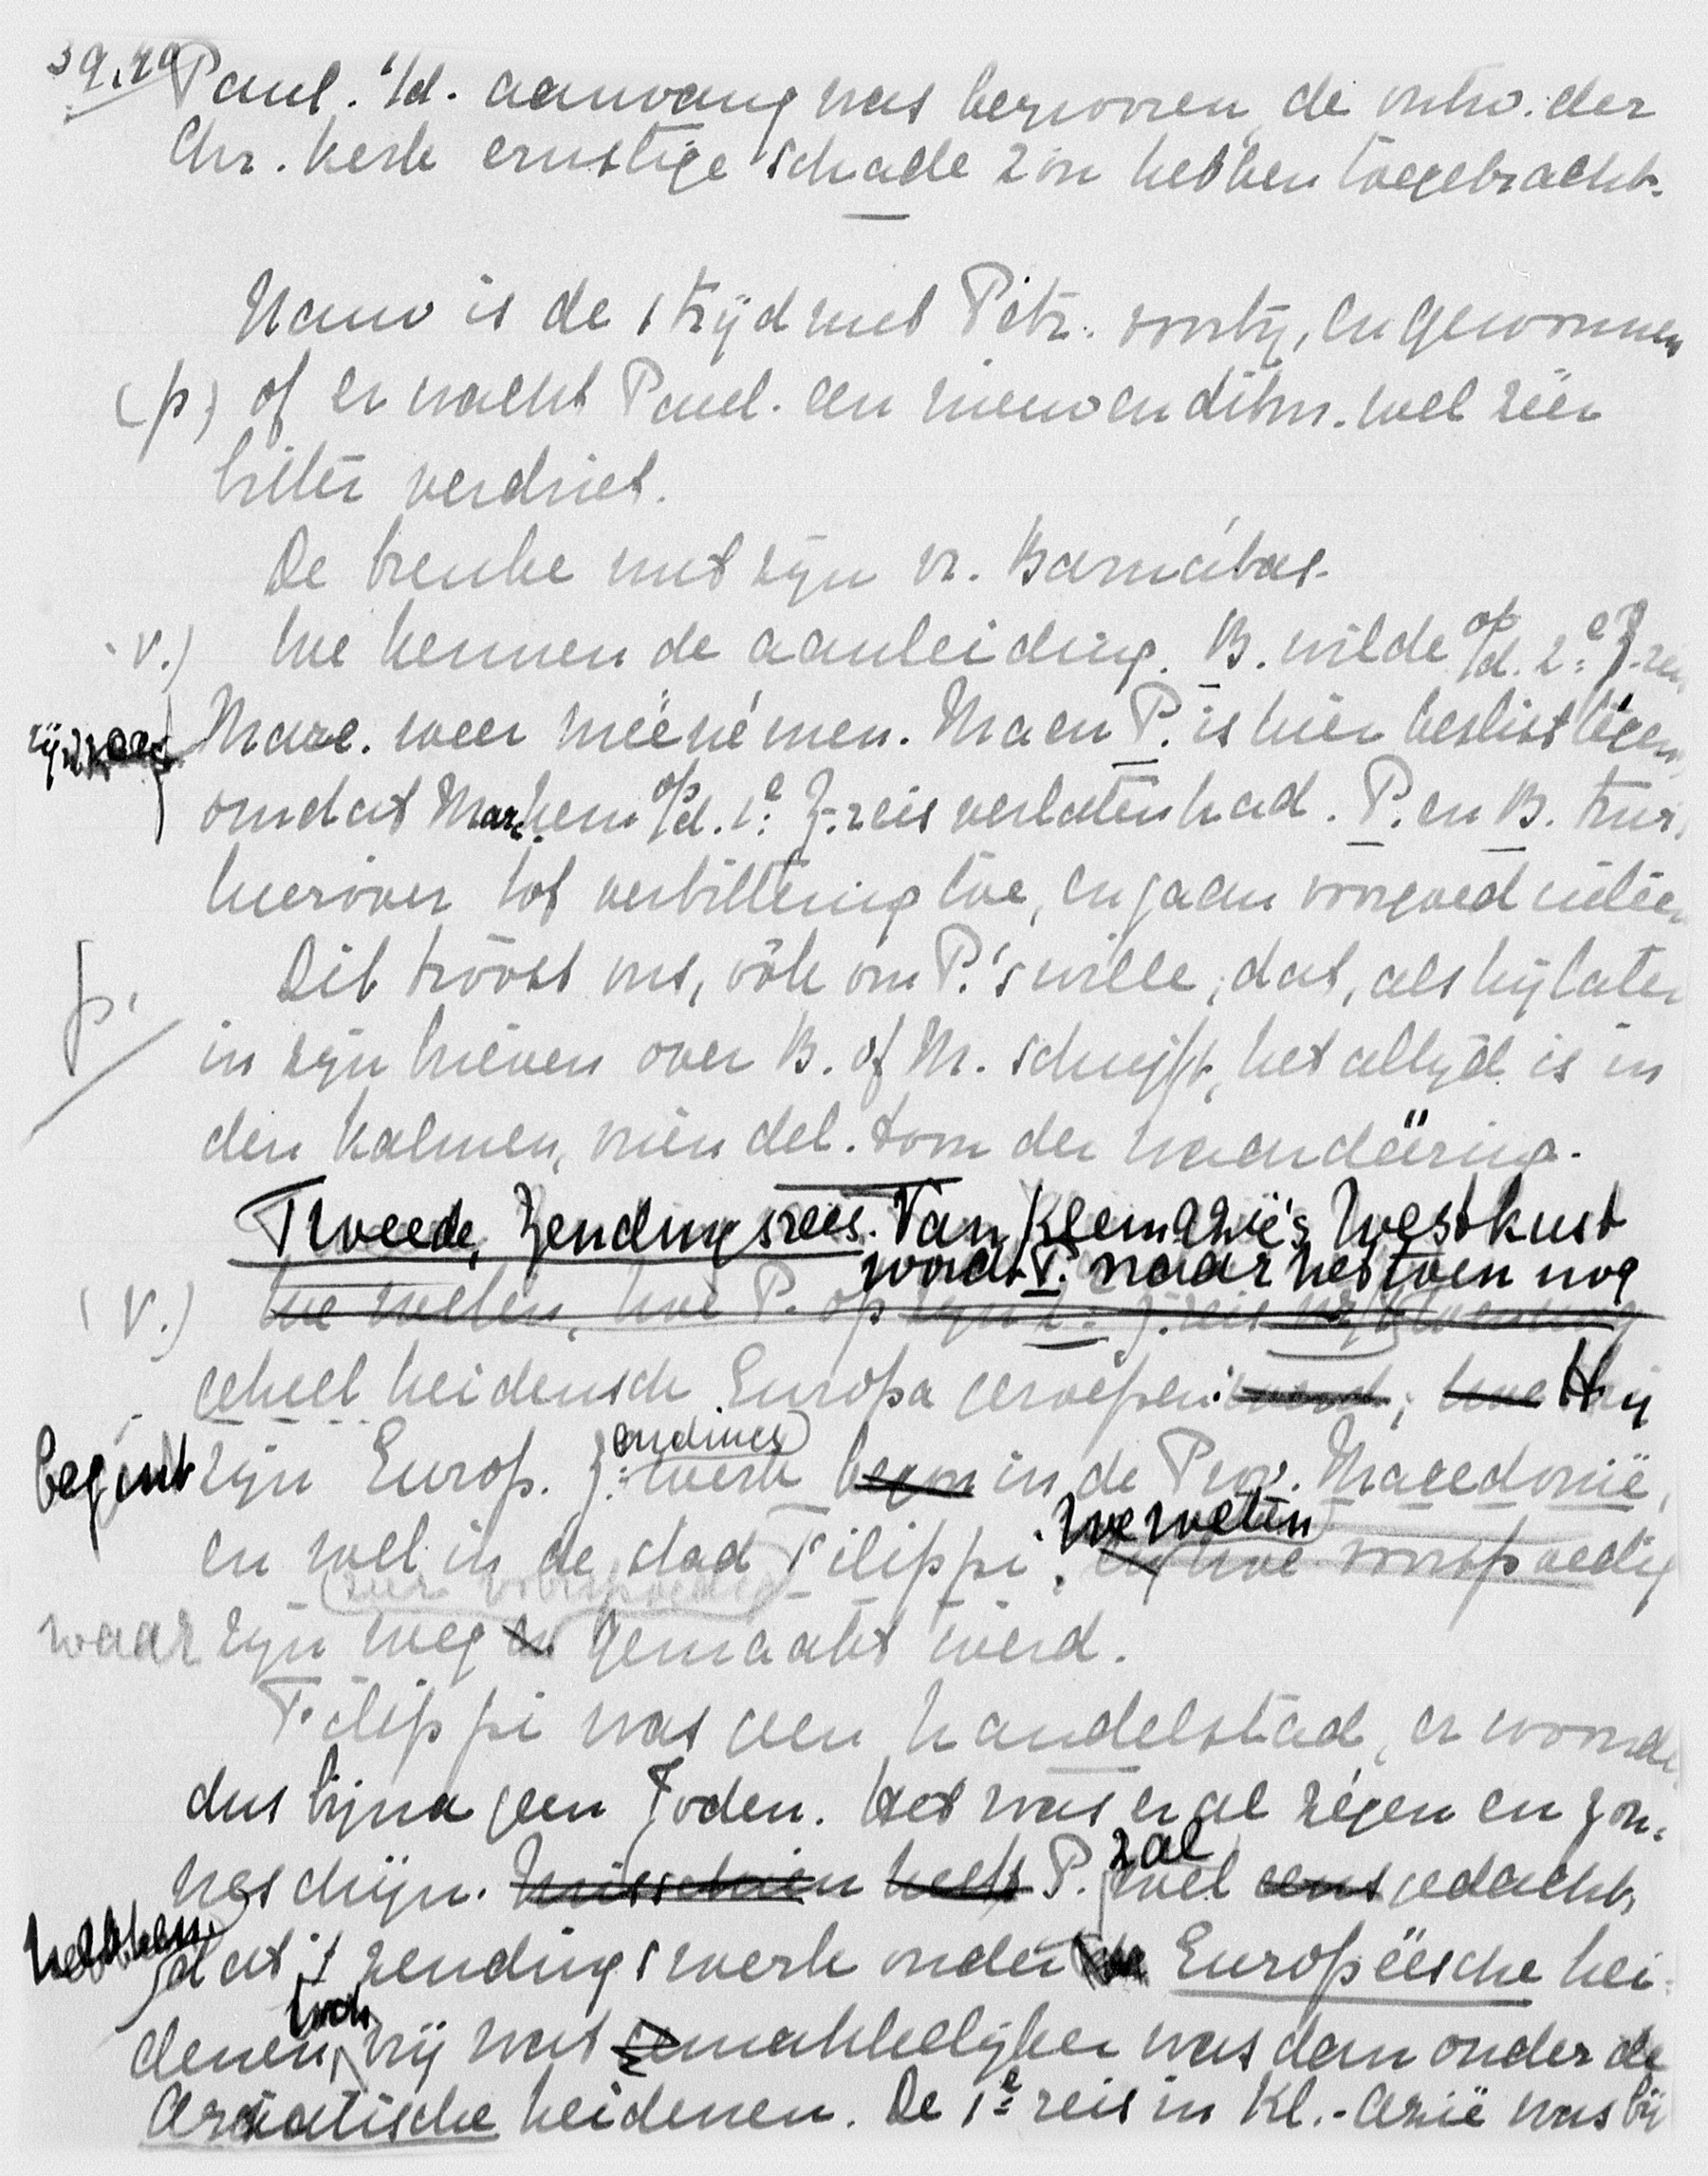 39.40
Paul. i/d. aanvang was bezworen, de ontw. der
Chr. kerk ernstige schade zou hebben toegebracht.
Nauw is de strijd met Petr. voorbij, en gewonnen
(p) of er wacht Paul. een nieuw en ditm. wel zéér
bitter verdriet.
De breuke met zijn vr. Barnábas.
v.) We kennen de aanleiding. B. wilde op/d. 2e Z.reis
Marc. weer méénémen. Maar P. is hier beslist tégen,
omdat Marc. hem op/d. 1e Z.reis verlaten had. P. en B.
hierover tot verbittering toe, en gaan voorgoed uiteen
p. Dit tróóst ons, óók om P.'s wille, dat, als hij later
in zijn brieven over B. of M. schrijft, het altijd is in
den kalmen, vriendel. toon der waardéring.
Tweede Zendingsreis. Van Kleinazië's Westkust
wordt P. naar het toen nog
(v.) We weten, hoe P. op zijn 2e Z.reis
geheel heidensch Europa geroepen. werd; hoe Hij
begint zijn Europ. Z.endings werk begon in de Prov. Macedonië,
We weten
en wel in de stad Filippi. en hoe voorspoedig
zeer voorspoedig
waar zijn weg er gemaakt werd.
Filippi was geen handelstad, er woonde
dus bijna geen Joden. Het was er al zégen en zon-
zal
neschijn. Misschien heeft P. wel eens gedacht,
hebben dat 't zendingswerk onder de Europëesche hei-
toch
denen vrij wat gemakkelijker was dan onder de
Aziatische heidenen. De 1e reis in Kl.-Azië was bij